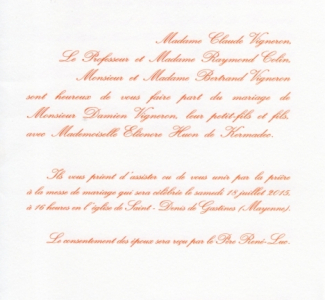 Madame Claude Vigneron,
Le Professeur et Madame Raymond Colin,
Monsieur et Madame Bertrand Vigneron
sont heureux de vous faire part du mariage de
Monsieur Damien Vigneron, leur petit-fils et fils,
avec Mademoiselle Eléonore Huon de Kermadec.
Ils vous prient d'assister ou de vous unir par la prière
à la messe de mariage qui sera célébrée le samedi 18 juillet 2015,
à 16 heures en l'église de Saint-Denis de Gastines (Mayenne).
Le consentement des époux sera reçu par le Père René-Luc.